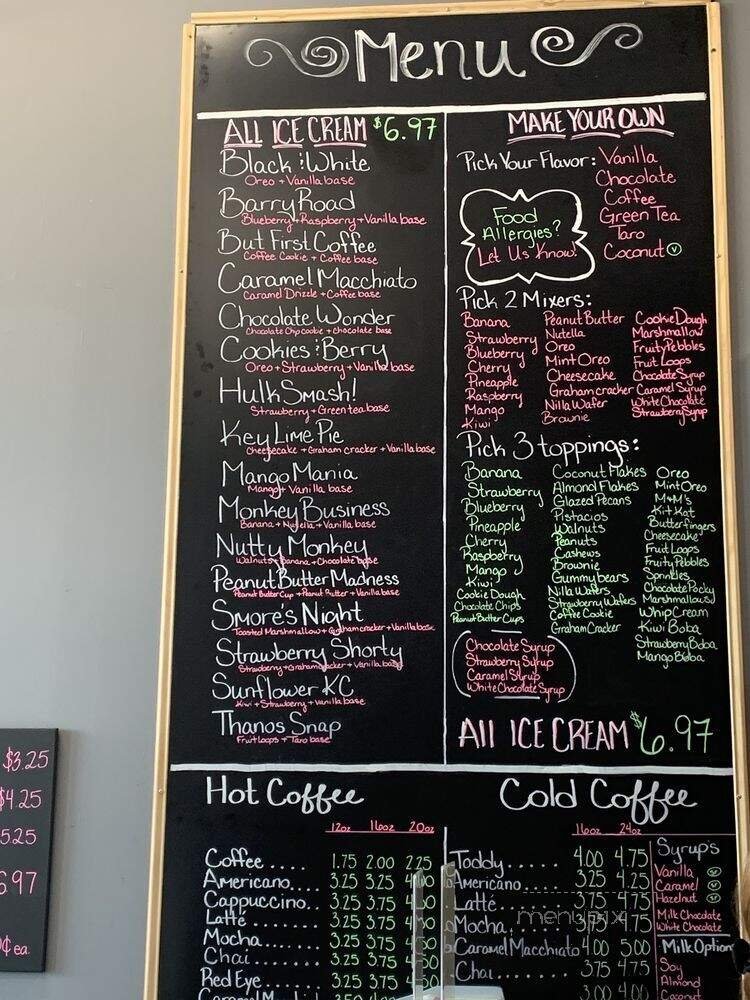 Menu
ALL ICE CREAM $6.97
Black & White
Oreo + Vanilla base
Barry Road
Blueberry + Raspberry + Vanilla base
But First Coffee
Coffee Cookie + Coffee base
Caramel Macchiato
Caramel Drizzle + Coffee base
Chocolate Wonder
Chocolate Chip cookie + chocolate base
Cookies & Berry
Oreo + Strawberry + Vanilla base
Hulk Smash!
Strawberry + Green tea base
Key Lime Pie
Cheesecake + Graham cracker + Vanilla base
Mango Mania
Mango + Vanilla base
Monkey Business
Banana + Nutella + Vanilla base
Nutty Monkey
Walnuts + Banana + Chocolate base
Peanut Butter Madness
Peanut Butter Cup + Peanut Butter + Vanilla base
Smore's Night
Toasted Marshmallow + Graham cracker + Vanilla base
Strawberry Shorty
Strawberry + Graham cracker + Vanilla base
Sunflower KC
Kiwi + Strawberry + Vanilla base
Thanos Snap
Fruit loops + Taro base
MAKE YOUR OWN
Pick Your Flavor: Vanilla
Chocolate
Coffee
Green Tea
Taro
Coconut V
Food
Allergies?
Let Us Know!
Pick 2 Mixers:
Banana
Strawberry
Blueberry
Cherry
Pineapple
Raspberry
Mango
Kiwi
Peanut Butter
Nutella
Oreo
Mint Oreo
Cheesecake
Graham cracker
Nilla Wafer
Brownie
Cookie Dough
Marshmallow
Fruity Pebbles
Fruit Loops
Chocolate Syrup
Caramel Syrup
White Chocolate
Strawberry Syrup
Pick 3 toppings:
Banana
Strawberry
Blueberry
Pineapple
Cherry
Raspberry
Mango
Kiwi
Cookie Dough
Chocolate Chips
Peanut Butter Cups
Coconut Flakes
Almond Flakes
Glazed Pecans
Pistacios
Walnuts
Peanuts
Cashews
Brownie
Gummy bears
Nilla Wafers
Strawberry Wafers
Coffee Cookie
Graham Cracker
Oreo
Mint Oreo
M&M's
Kit Kat
Butterfingers
Cheesecake
Fruit Loops
Fruity Pebbles
Sprinkles
Chocolate Pocky
Marshmallows
Whip Cream
Kiwi Boba
Strawberry Boba
Mango Boba
Chocolate Syrup
Strawberry Syrup
Caramel Syrup
White Chocolate Syrup
All ICE CREAM $6.97
Hot Coffee
12oz 16oz 20oz
Coffee ..... 1.75 2.00 2.25
Americano... 3.25 3.75
Cappuccino.. 3.25 3.75
Latte ..... 3.25 3.75
Mocha..... 3.25 3.75
Chai ...... 3.25 3.75
Red Eye .... 3.25 3.75
Cold Coffee
16oz 24oz
Toddy...... 4.00 4.75
Americano.. 3.25 4.25
Latté ..... 3.75 4.75
Mocha ..... 3.75 4.75
Caramel Macchiato 4.00 5.00
Chai ...... 3.75 4.75
3.00 4.00
Syrups
Vanilla
Caramel
Hazelnut
Milk Chocolate
White Chocolate
Milk Option
Soy
Almond
menupix
$3.25
$4.25
5.25
6.97
¢ ea.